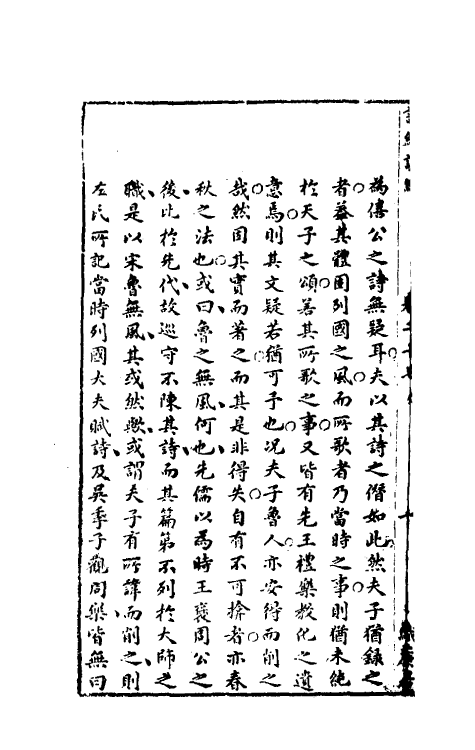 為僖公之詩無疑耳夫以其詩之僭如此然夫子猶錄之
者蓋其體固列國之風而所歌者乃當時之事則猶未純
於天子之頌若其所歌之事又皆有先王禮樂教化之遺
意焉則其文疑若猶可予也况夫子魯人亦安得而削之
哉然因其實而著之而其是非得失自有不可揜者亦春
秋之法也或曰魯之無風何也先儒以為時王褒周公之
後比於先代故巡守不陳其詩而其篇第不列於大師之
職是以宋魯無風其或然歟或謂夫子有所諱而削之則
左氏所記當時列國大夫賦詩及吳季子觀周樂皆無曰